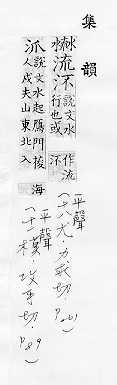 集韻
流㳅說文水行也或作流
平聲
（十八尤．力求切．p261）
泒說文水起鴈門葰人戍夫山東北入海
平聲
（十一模．攻乎切．p89）